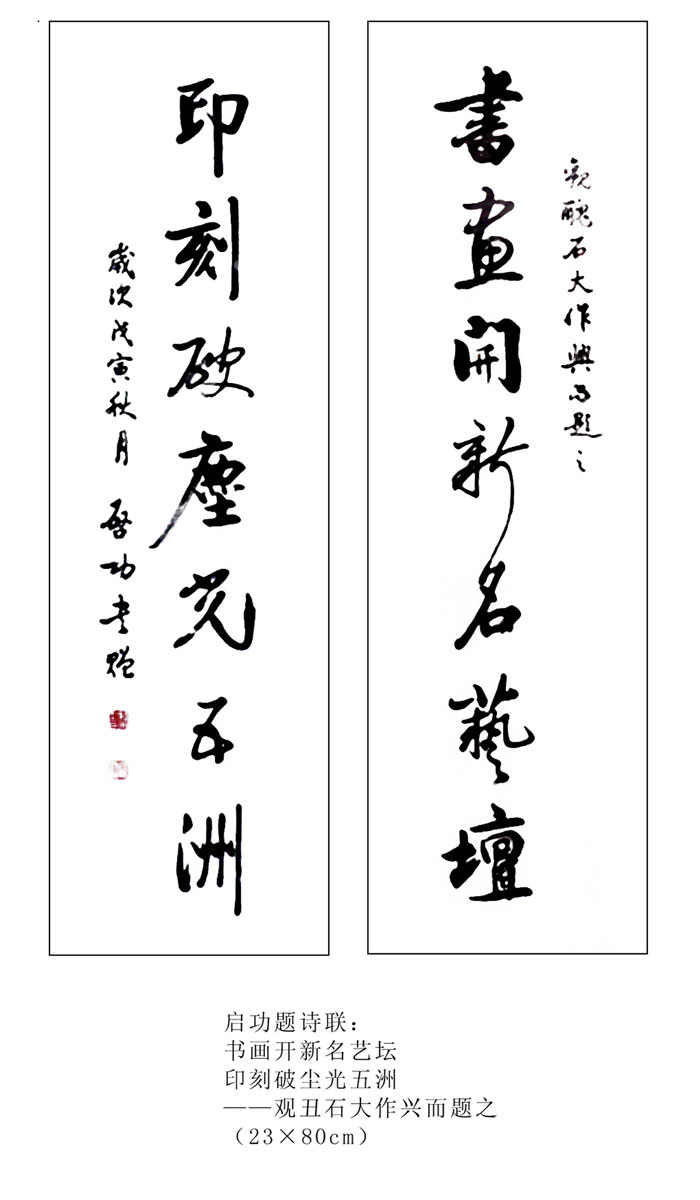 觀醜石大作興而題之
書畫開新名藝壇
印刻破塵光五洲
歲次戊寅秋月 啓功書贈
启功题诗联：
书画开新名艺坛
印刻破尘光五洲
——观丑石大作兴而题之
（23×80cm）